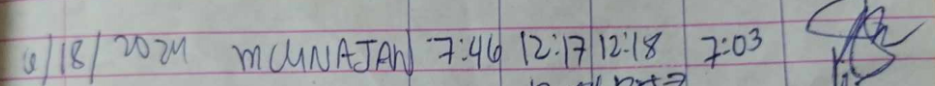 6/18/2024 MCUNAJAN 7:46 12:17 12:18 7:03